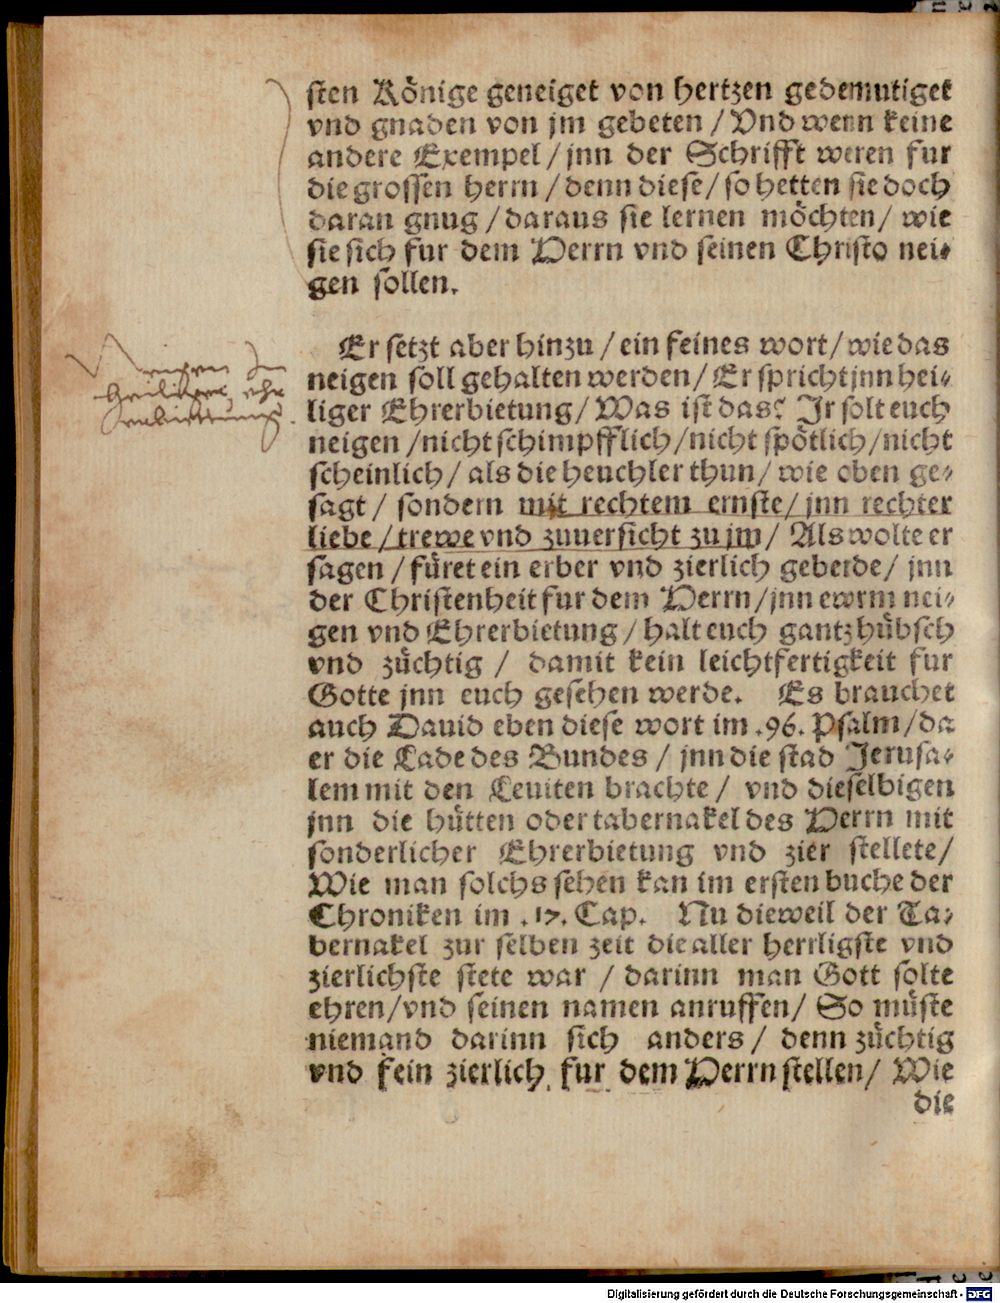 sten Könige geneiget von hertzen gedemutiget
vnd gnaden von jm gebeten / Vnd wenn keine
andere Exempel / jnn der Schrifft weren fur
die grossen herrn / denn diese / so hetten sie doch
daran gnug / daraus sie lernen möchten / wie
sie sich fur dem HErrn vnd seinen Christo nei⸗
gen sollen.
Er setzt aber hinzu / ein feines wort / wie das
neigen soll gehalten werden / Er spricht jnn hei⸗
liger Ehrerbietung / Was ist das? Ir solt euch
neigen / nicht schimpfflich / nicht spötlich / nicht
scheinlich / als die heuchler thun / wie oben ge⸗
sagt / sondern mit rechtem ernste / jnn rechter
liebe / trewe vnd zuuersicht zu jm / Als wolte er
sagen / füret ein erber vnd zierlich geberde / jnn
der Christenheit fur dem HErrn / jnn ewrm nei⸗
gen vnd Ehrerbietung / halt euch gantz hübsch
vnd züchtig / damit kein leichtfertigkeit fur
Gotte jnn euch gesehen werde. Es brauchet
auch Dauid eben diese wort im .96. Psalm / da
er die Lade des Bundes / jnn die stad Jerusa⸗
lem mit den Leuiten brachte / vnd dieselbigen
jnn die hütten oder tabernakel des HErrn mit
sonderlicher Ehrerbietung vnd zier stellete /
Wie man solchs sehen kan im ersten buche der
Chroniken im .17. Cap. Nu dieweil der Ta⸗
bernakel zur selben zeit die aller herrligste vnd
zierlichste stete war / darinn man Gott solte
ehren / vnd seinen namen anruffen / So müste
niemand darinn sich anders / denn züchtig
vnd fein zierlich fur dem HErrn stellen / Wie
die
Neigen In
heiliger ehr
Digitalisierung gefördert durch die Deutsche Forschungsgemeinschaft - DFG